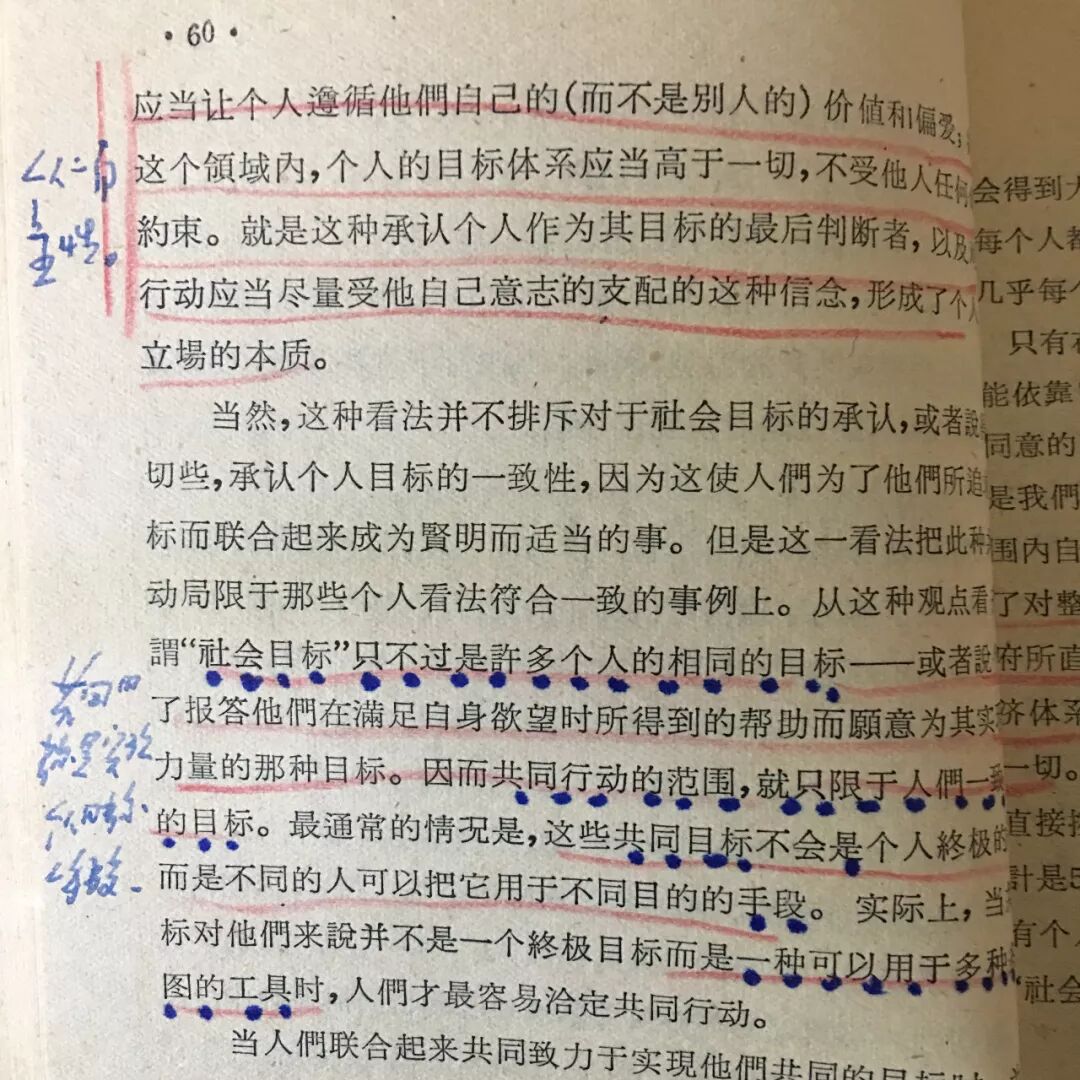 · 60 ·
应当让个人遵循他們自己的(而不是別人的)价値和偏爱,
这个領域內,个人的目标体系应当高于一切,不受他人任何
約束。就是这种承认个人作为其目标的最后判断者,以及
行动应当尽量受他自己意志的支配的这种信念,形成了个人
立場的本质。
当然,这种看法并不排斥对于社会目标的承认,或者說
切些,承认个人目标的一致性,因为这使人們为了他們所追
标而联合起来成为賢明而适当的事。但是这一看法把此种
动局限于那些个人看法符合一致的事例上。从这种观点看
謂“社会目标”只不过是許多个人的相同的目标——或者說
了报答他們在滿足自身欲望时所得到的帮助而願意为其实
力量的那种目标。因而共同行动的范围,就只限于人們一致
的目标。最通常的情况是,这些共同目标不会是个人終极的
而是不同的人可以把它用于不同目的的手段。实际上,当
标对他們来說并不是一个終极目标而是一种可以用于多种
图的工具时,人們才最容易洽定共同行动。
当人們联合起来共同致力于实現他們共同的目标时
会得到大
每个人都
几乎每个
只有在
能依靠
同意的
是我們
围內自
了对整
府所直
济体系
一切。
直接
計是
有个人
社会
共同的